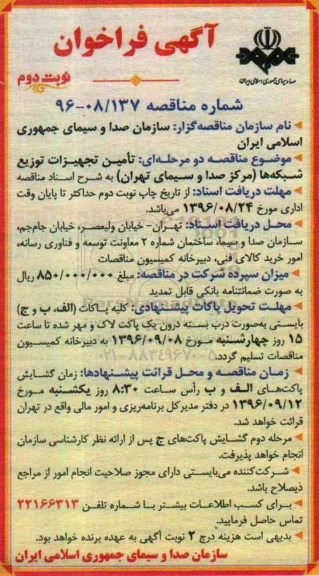 آگهی فراخوان
صدا و سیمای جمهوری اسلامی ایران
نوبت دوم
شماره مناقصه ۹۶-۰۸/۱۳۷
نام سازمان مناقصه‌گزار: سازمان صدا و سیمای جمهوری
اسلامی ایران
موضوع مناقصه دو مرحله‌ای: تأمین تجهیزات توزیع
شبکه‌ها (مرکز صدا و سیمای تهران) به شرح اسناد مناقصه
مهلت دریافت اسناد: از تاریخ چاپ نوبت دوم حداکثر تا پایان وقت
اداری مورخ ۱۳۹۶/۰۸/۲۴ می‌باشد.
محل دریافت اسناد: تهران- خیابان ولیعصر، خیابان جام‌جم،
سازمان صدا و سیما، ساختمان شماره ۲ معاونت توسعه و فناوری رسانه،
امور خرید کالای فنی، دبیرخانه کمیسیون مناقصات
میزان سپرده شرکت در مناقصه: مبلغ ۸۵۰/۰۰۰/۰۰۰ ریال
به صورت ضمانتنامه بانکی قابل تمدید
مهلت تحویل پاکات پیشنهادی: کلیه پاکات (الف، ب و ج)
بایستی به‌صورت درب بسته درون یک پاکت لاک و مهر شده تا ساعت
۱۵ روز چهارشنبه مورخ ۱۳۹۶/۰۹/۰۸ به دبیرخانه کمیسیون
مناقصات تسلیم گردد.
زمان مناقصه و محل قرائت پیشنهادها: زمان گشایش
پاکت‌های الف و ب رأس ساعت ۸:۳۰ روز یکشنبه مورخ
۱۳۹۶/۰۹/۱۲ در دفتر مدیرکل برنامه‌ریزی و امور مالی واقع در تهران
قرائت خواهد شد.
مرحله دوم گشایش پاکت‌های ج پس از ارائه نظر کارشناسی سازمان
انجام خواهد پذیرفت.
شرکت‌کننده می‌بایستی دارای مجوز صلاحیت انجام امور از مراجع
ذیصلاح باشد.
برای کسب اطلاعات بیشتر با شماره تلفن ۲۲۱۶۶۳۱۳
تماس حاصل فرمایید.
بدیهی است هزینه درج ۲ نوبت آگهی به عهده برنده خواهد بود.
سازمان صدا و سیمای جمهوری اسلامی ایران